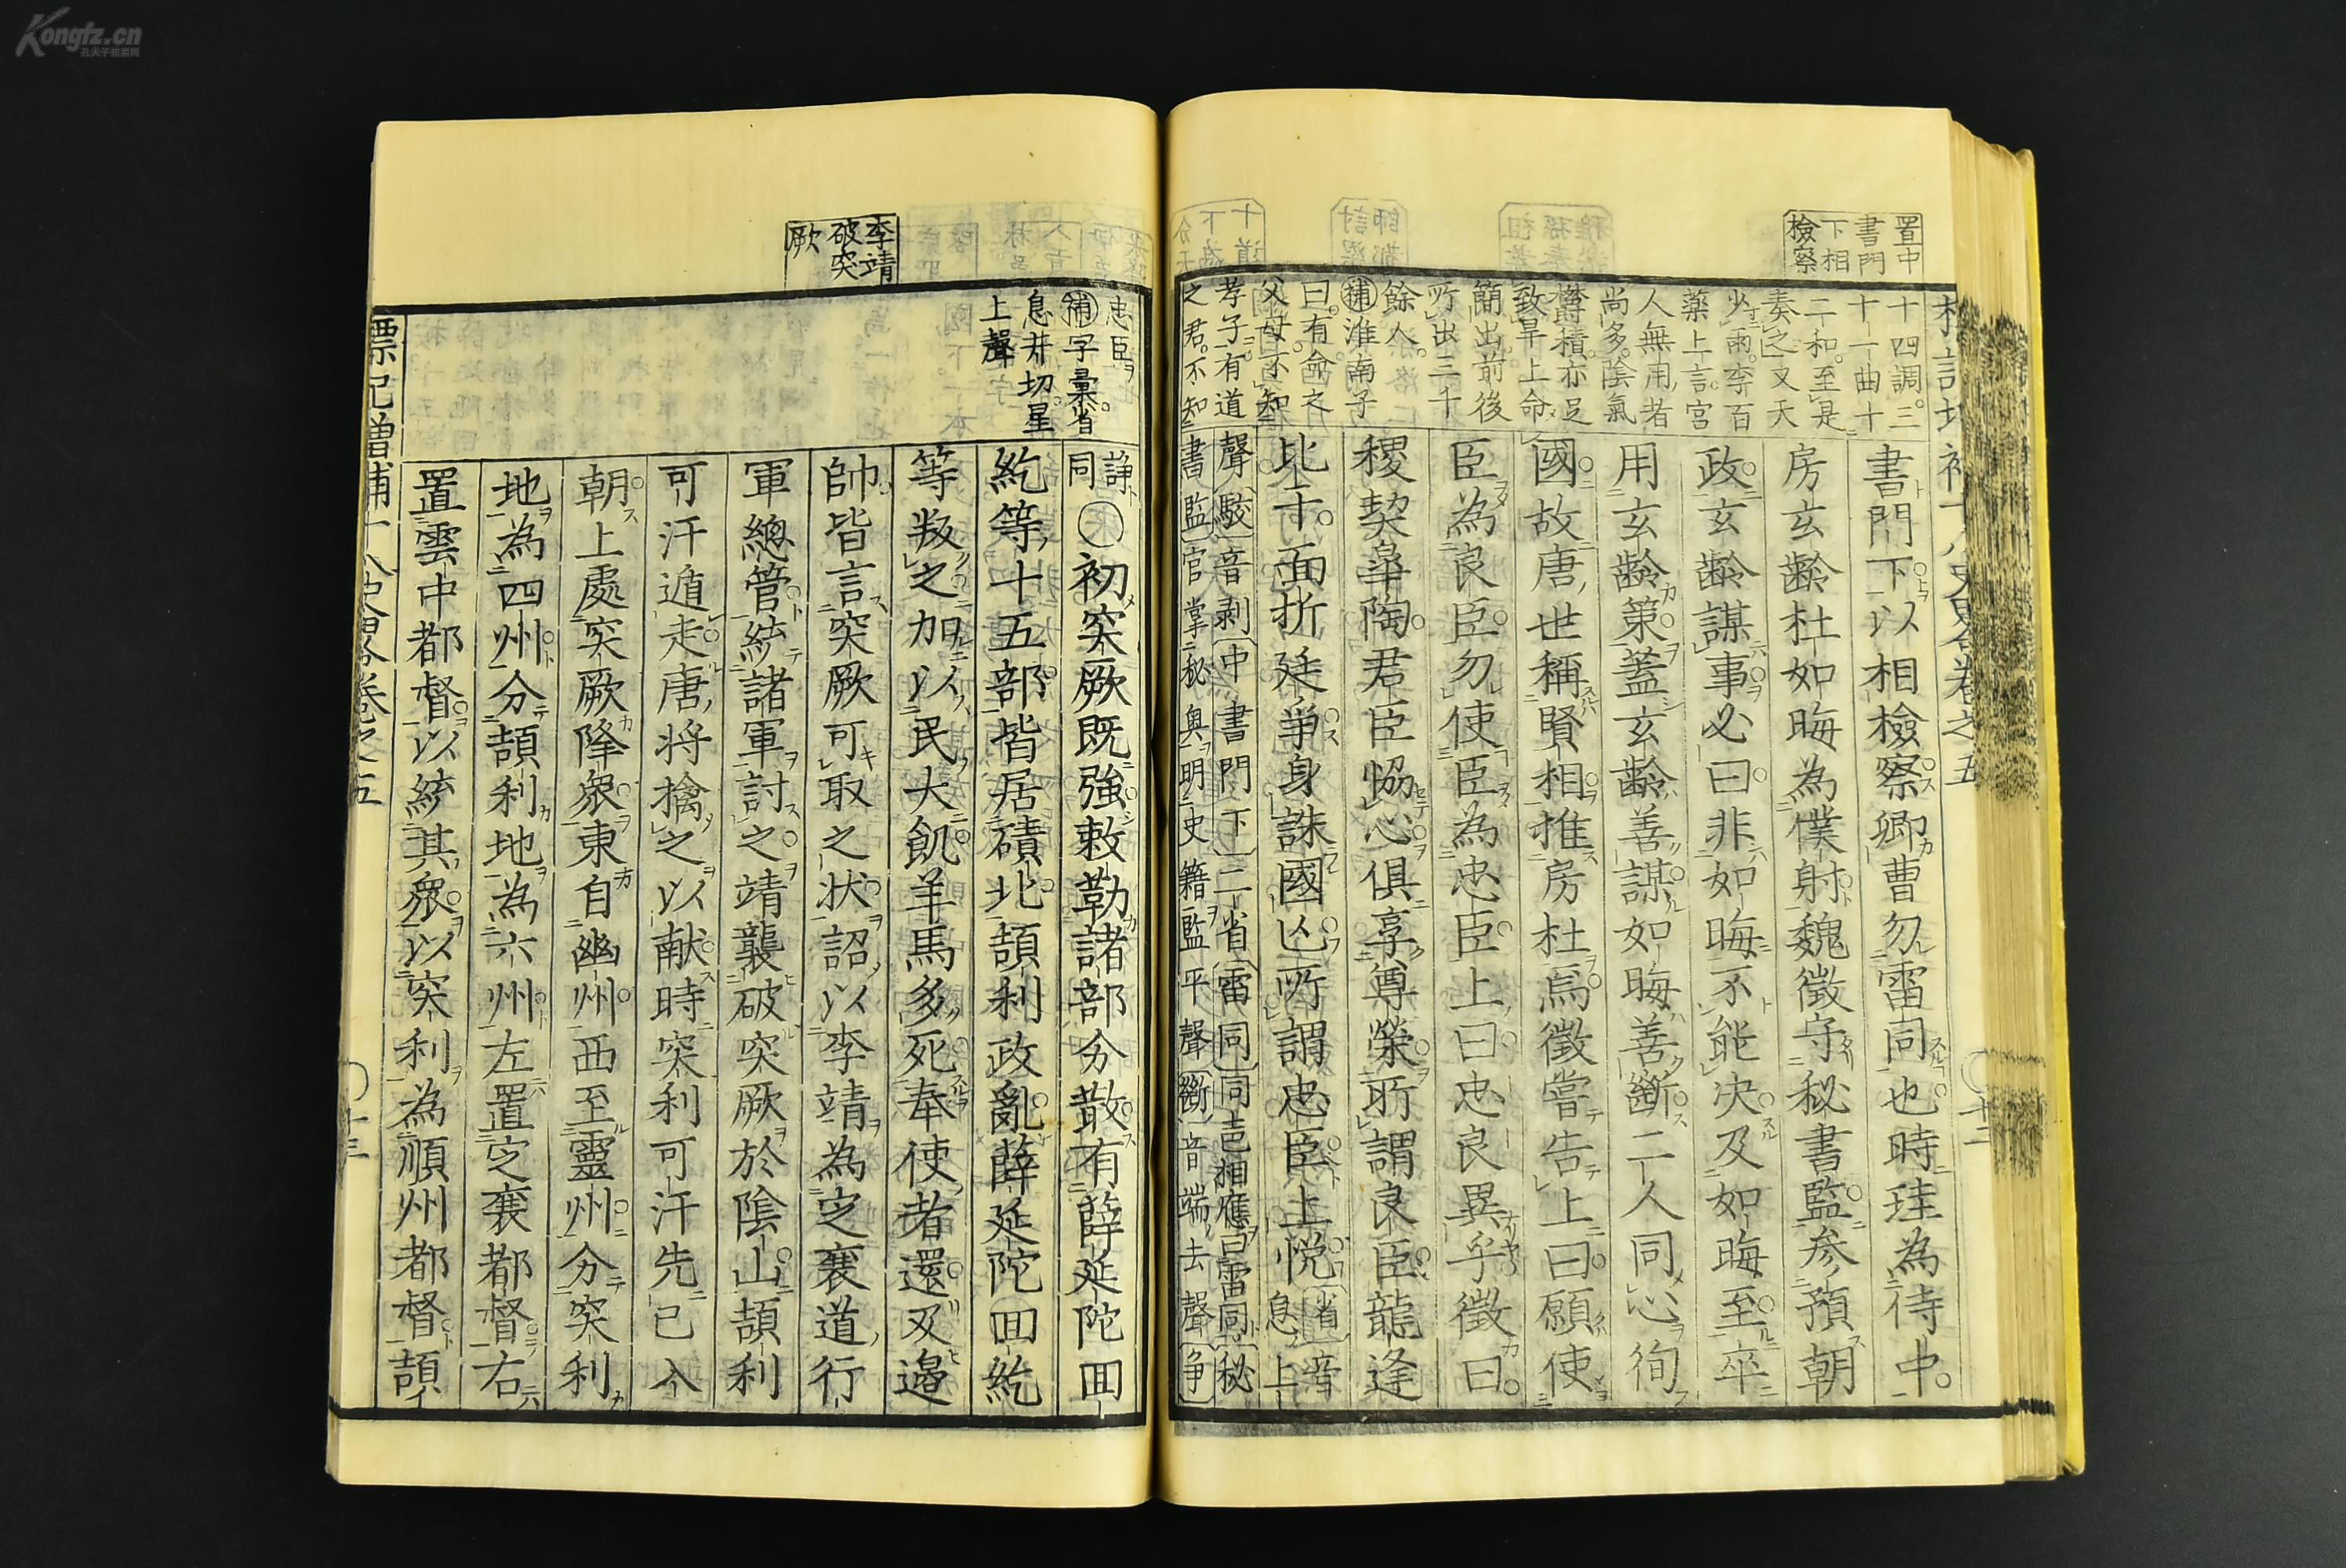 Kongfz.cn
孔夫子拍卖网
置中
書門
下相
檢察
十四調。三
十一曲十
二和。至是
奏之又天
少雨。李百
藥上言。宮
人無用者
尚多。陰氣
鬱積亦足
致旱上命
簡出前後
所出三千
餘人。
補淮南子
曰。有命之
父母不知
孝子。有道
之君。不知
書門下以相檢察卿曹勿雷同也時珪為侍中
房玄齡杜如晦為僕射魏徵守秘書監參預朝
政玄齡謀事必曰非如晦不能決及如晦至卒
用玄齡策蓋玄齡善謀如晦善斷二人同心徇
國故唐世稱賢相推房杜焉徵嘗告上曰願使
臣為良臣勿使臣為忠臣上曰忠良異乎徵曰
稷契皐陶君臣恊心俱享尊榮所謂良臣龍逢
比干面折廷爭身誅國亾所謂忠臣上悅省音息上
聲駮音剥中書門下二省雷同同声相應曰雷同秘
書監官掌秘奥明史籍監平聲斷音端去聲爭
李靖
破突
厥
忠臣
補字彙。省
息井切星
上聲
諍同初突厥既強敕勒諸部分散有薛延陀回
紇等十五部皆居磧北頡利政亂薛延陀回紇
等叛之加以民大飢羊馬多死奉使者還及邊
帥皆言突厥可取之状詔以李靖為定襄道行
軍總管統諸軍討之靖襲破突厥於陰山頡利
可汗遁走唐將擒之以献時突利可汗先已入
朝上處突厥降衆東自幽州西至靈州分突利
地為四州分頡利地為六州左置定襄都督右
置雲中都督以統其衆以突利為順州都督頡
標記增補十八史畧卷之五
十三